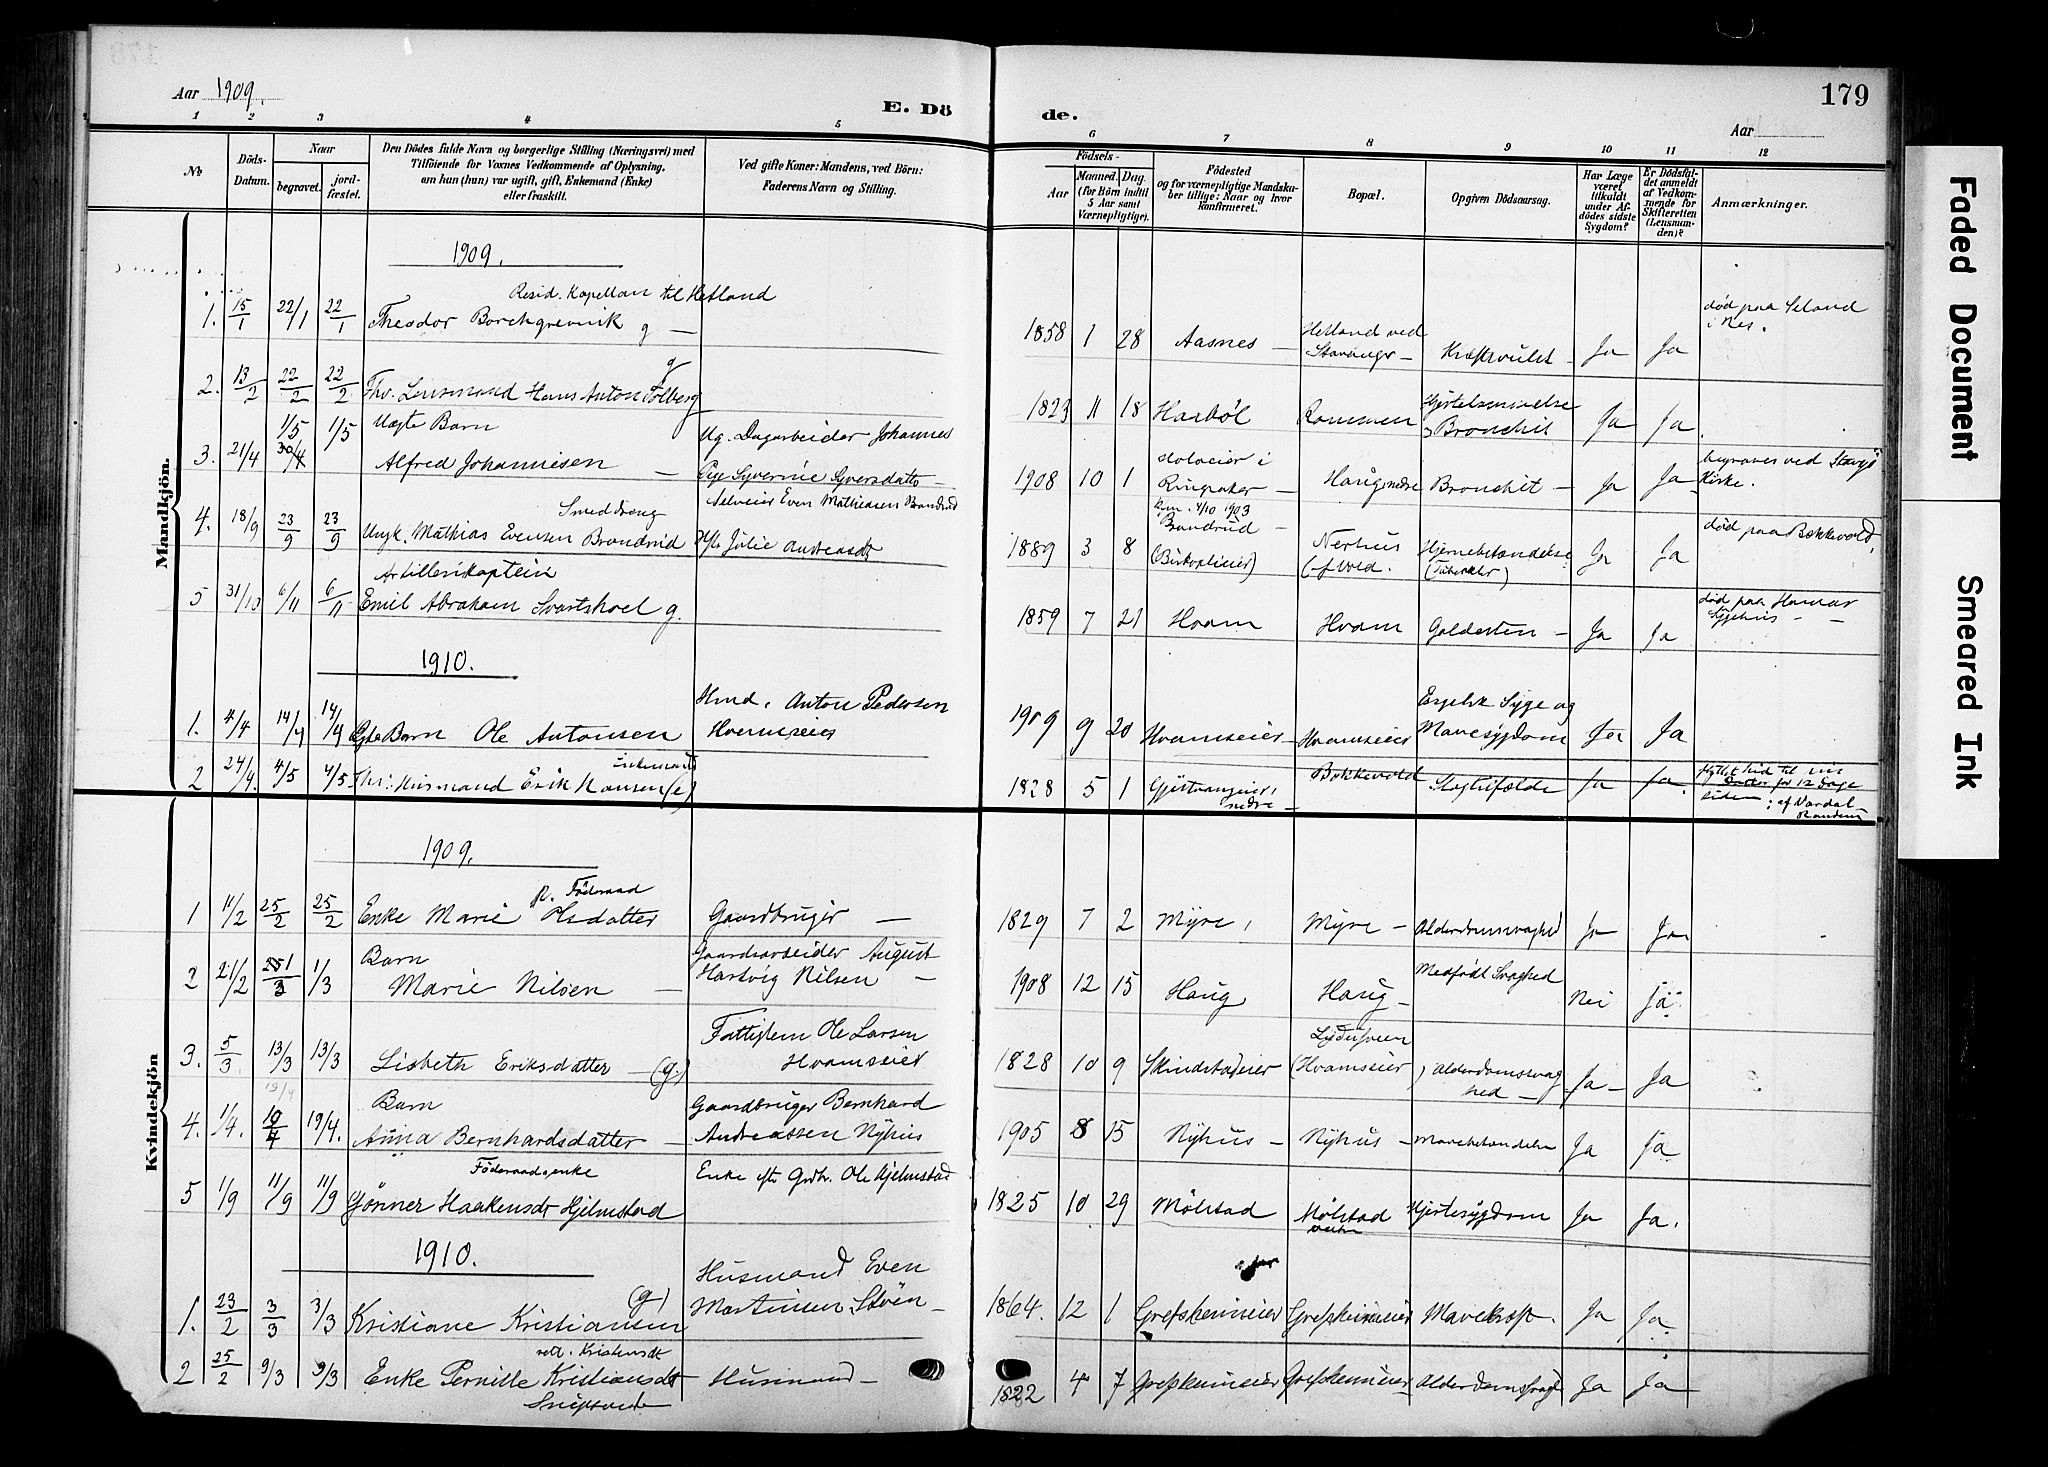 179
Aar 1909.
E. Dö
de.
Aar
1 2 3 4 5 6 7 8 9 10 11 12
No
Döds-
Datum.
Naar
begravet.
jord-
fæstet.
Den Dödes fulde Navn og borgerlige Stilling (Næringsvei) med
Tilföiende for Voxnes Vedkommende af Oplysning,
om hun (hun) var ugift, gift, Enkemand (Enke)
eller fraskilt.
Ved gifte Koner: Mandens, ved Börn:
Faderens Navn og Stilling.
Födsels-
Aar
Maaned. Dag.
(for Börn indtil
5 Aar samt
Værnepligtige).
Födested
og for værnepligtige Mandska-
ber tillige: Naar og hvor
konfirmeret.
Bopæl.
Opgiven Dödsaarsag.
Har Læge
været
tilkaldt
under Af-
dödes sidste
Sygdom?
Er Dödsfal-
det anmeldt
af Vedkom-
mende for
Skifteretten
(Lensman-
den)?
Anmærkninger.
Mandkjön.
1909.
Resid. Kapellan til Hetland
1. 15/1 22/1 22/1 Theodor Borchgrevink g — 1858 1 28 Aasnes — Hetland ved Stavanger — Kræftsvulst — Ja Ja død paa Seland i Nes.
2. 13/2 22/2 22/2 Fhv. Lensmand Hans Anton Folberg g 1823 11 18 Hasböl Rommen Bronchit Ja Ja
Uægte Barn
3. 21/4 30/4 1/5 1/5 Alfred Johannesen — Ug. Dagarbeider Johannes
Pige Syverine Syversdatter — 1908 10 1 Ringsaker — Haug nedre Bronchit — Ja Ja begraves ved Kirke.
Smeddreng
4. 18/9 23/9 23/9 Ungk. Mathias Evensen Brandrud Selveier Even Mathiasen Brandrud
Hst Julie Andreasdt 1889 3 8 Brandrud — Nerhus Hjernebetændelse (Tuberkler) Ja Ja død paa Bækkevold.
Artillerikaptein
5 31/10 6/11 6/11 Emil Abraham Svartskoel g. 1859 7 21 Hvam Hvam Galdesten — Ja Ja død paa Hamar Sygehus —
1910.
1. 4/4 14/4 14/4 Ægte Barn Ole Antonsen Hmd. Anton Pedersen
Hvamseier 1909 9 20 Hvamseier — Hvamseier Engelsk Syge og
Mavesygdom Ja Ja
2 24/4 4/5 4/5 Fhv. Husmand Erik Hansen (e) Enkemand 1828 5 1 nedre — Bækkevold Slagtilfælde Ja Ja flyttet hid til sin
Datter for 12 Dage
siden; af Vardal —
Kvindekjön
1909.
1 11/2 25/2 25/2 Enke Marie Olsdatter p. Föderaad Gaardbruger — 1829 7 2 Myre, Myre — Alderdomssvaghed Ja Ja
Barn
2 21/2 1/3 1/3 Marie Nilsen — Gaardsarbeider August
Hartvig Nilsen — 1908 12 15 Haug Haug — Medfödt Svaghed Nei Ja
3. 5/3 13/3 13/3 Lisbeth Eriksdatter — (g.) Fattiglem Ole Larsen
Hvamseier 1828 10 9 Skindstadeier (Hvamseier) Alderdomssvag-
hed — Ja — Ja
Barn
4. 1/4. 19/4 19/4. Anna Bernhardsdatter — Gaardbruger Bernhard
Andreassen Nyhus 1905 8 15 Nyhus — Nyhus — Mavebetændelse Ja Ja
Föderaadsenke
5 1/9 11/9 11/9 Gönner Haakensdt Hjelmstad Enke eft. Grdbr. Ole Hjelmstad 1825 10 29 Mölstad Mölstad Hjertesygdom Ja Ja.
1910.
1. 23/2 3/3 3/3 Kristiane Kristiansen (g) Husmand Even
Martinsen Stöen — 1864. 12 1 Grefsheimeier Grefsheimeier Mavekræft. Ja Ja
2 25/2 9/3 9/3 Enke Pernille Kristiansdt
rett. Kristensdt Husmand — 1822 4 7 Grefsheimeier Grefsheimeier Alderdomssvagh Ja Ja
Faded Document
Smeared Ink